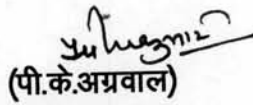 (पी.के.अग्रवाल)